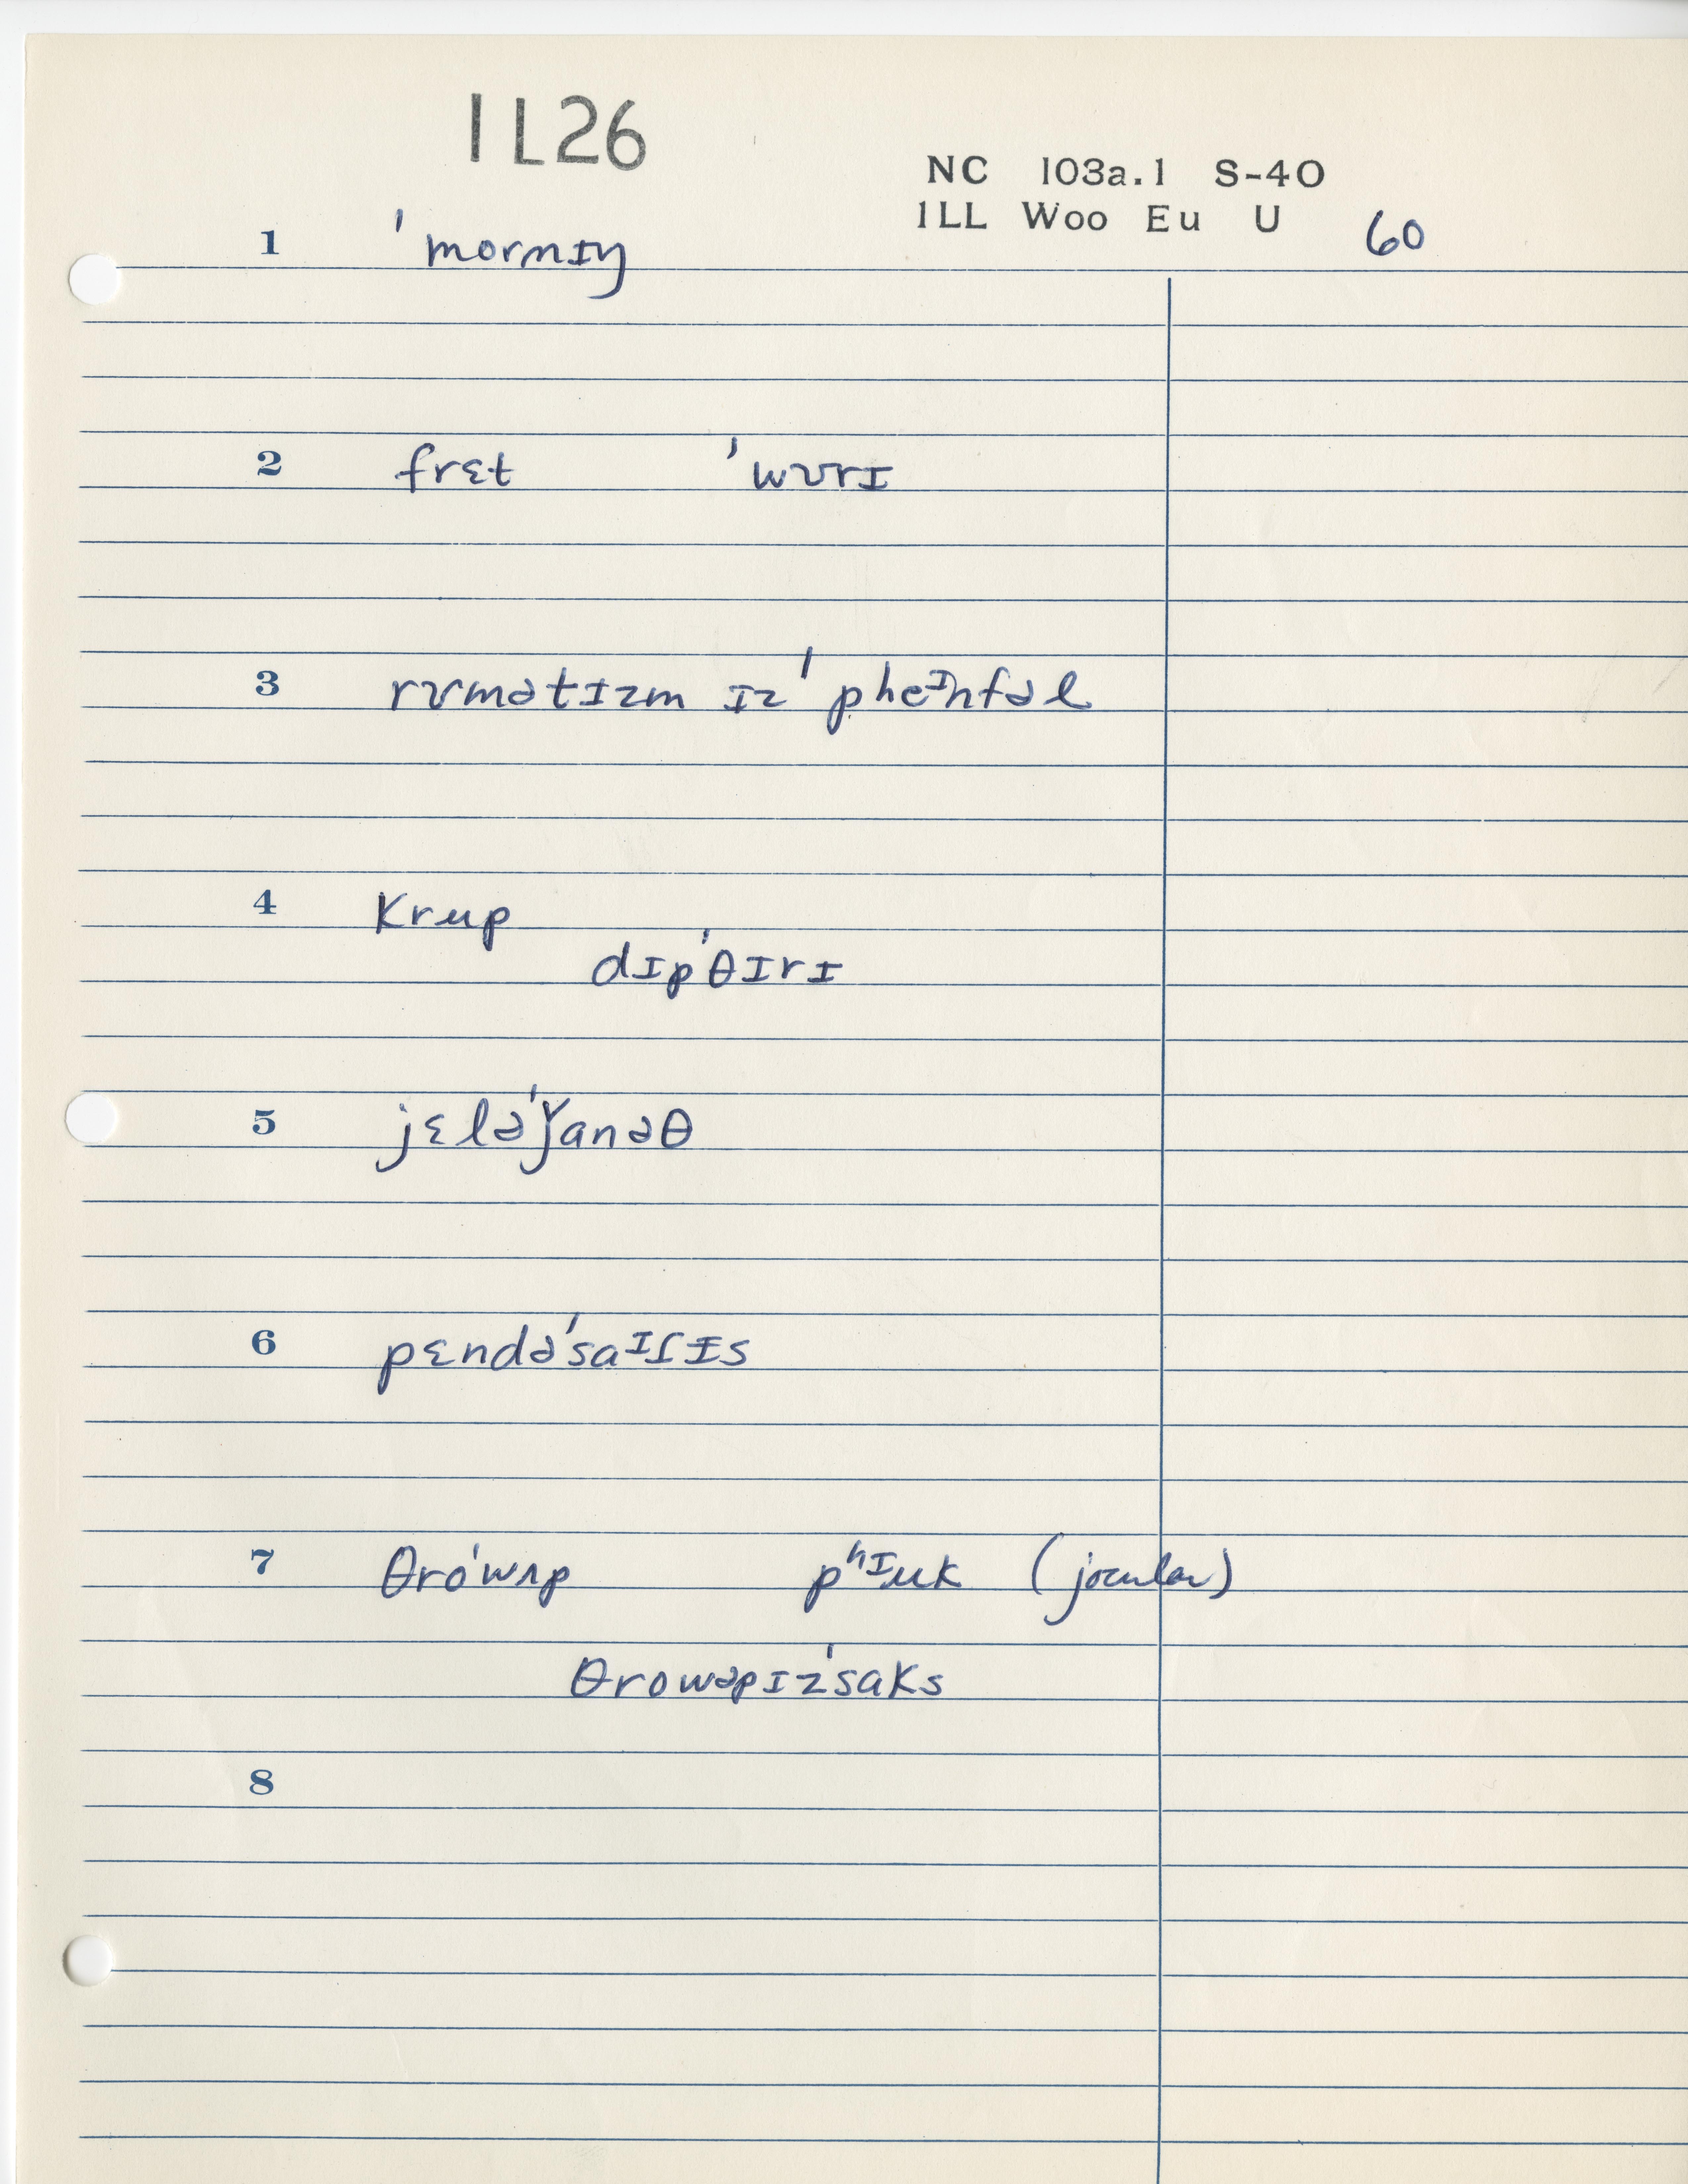 1L26
NC 103a.1 S-40
1LL Woo Eu U 60
1 ˈmornɪŋ
2 frɛt ˈwʊrɪ
3 rʊmətɪzm ɪz ˈpheᶦnfəl
4 Krup
dɪpˈθɪrɪ
5 jɛləˈǰanəθ
6 pɛndəˈsaᶦſɪs
7 θroˈwʌp pʰᶦuk (jocular)
θrowəpɪzˈsaks
8